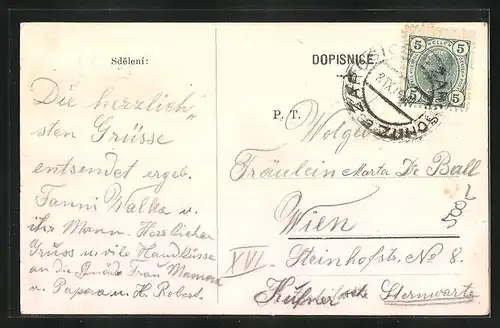 Sdělení:
Die herzlich„
sten Grüsse
entsendet ergeb.
Fanni Walka u.
ihr Mann. Herzlicher
Gruss u. vile Handküsse
an die Gnäde Frau Mamma
u. Papa u. H. Robert.
DOPISNICE.
P. T.
Wolgeb
Fräulein Marta De Ball
Wien
XVI. Steinhofstr. No 8.
Kufner'sche Sternwarte
5 HELLER 5
5 5